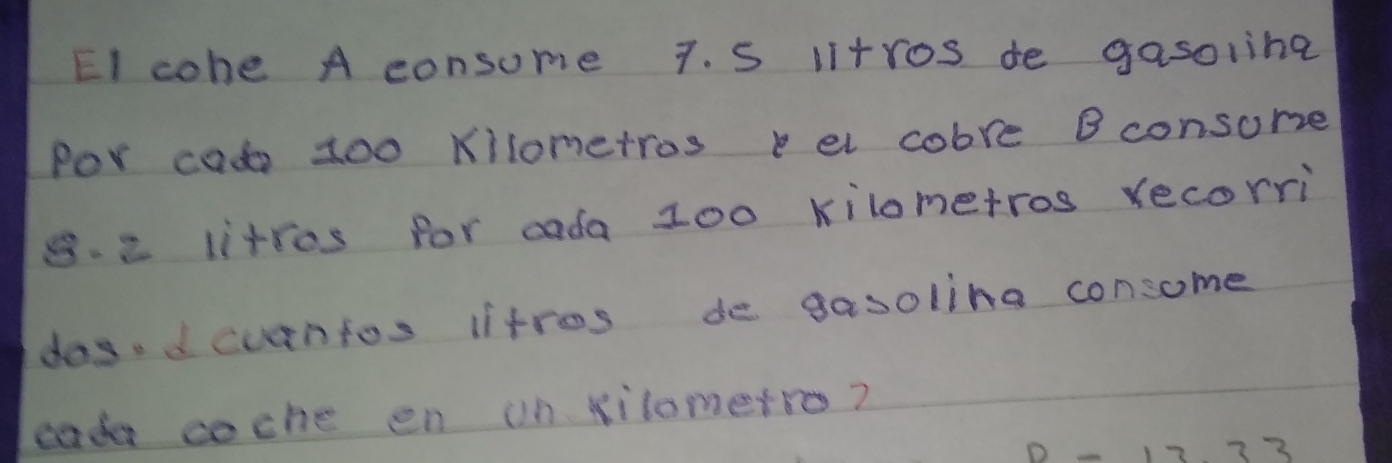 El cohe A consume 7.5 litros de gasolina
Por cada 100 Kilometros y el cobre B consume
8.2 litros Por cada 100 Kilometros recorri
dos. ¿cuantos litros de gasolina consume
cada coche en un kilometro?
R = 13.33